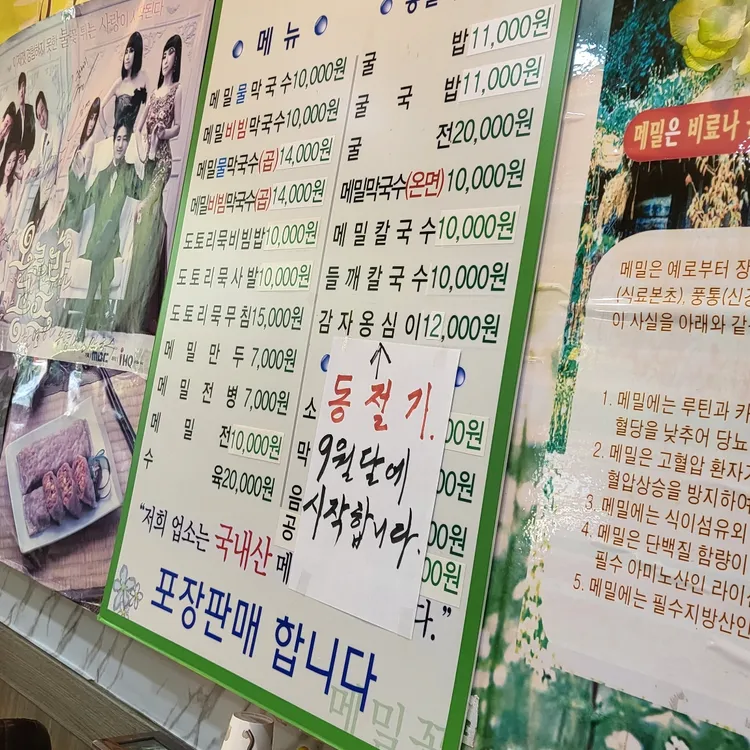 메뉴
메밀물막국수10,000원
메밀비빔막국수10,000원
메밀물막국수(곱)14,000원
메밀비빔막국수(곱)14,000원
도토리묵비빔밥10,000원
도토리묵사발10,000원
도토리묵무침15,000원
메밀만두7,000원
메밀전병7,000원
메밀전10,000원
수육20,000원
굴밥11,000원
굴국밥11,000원
굴전20,000원
메밀막국수(온면)10,000원
메밀칼국수10,000원
들깨칼국수10,000원
감자옹심이12,000원
동절기.
9월달에
시작합니다.
소
00원
막
00원
음
00원
공
00원
"저희 업소는 국내산 메
다."
포장판매 합니다
메밀은 비료나
메밀은 예로부터 장
(식료본초), 풍통(신
이 사실을 아래와 같
1. 메밀에는 루틴과 카
혈당을 낮추어 당뇨
2. 메밀은 고혈압 환자
혈압상승을 방지하여
3. 메밀에는 식이섬유외
4. 메밀은 단백질 함량이
필수 아미노산인 라이
5. 메밀에는 필수지방산인
mbc
iHQ